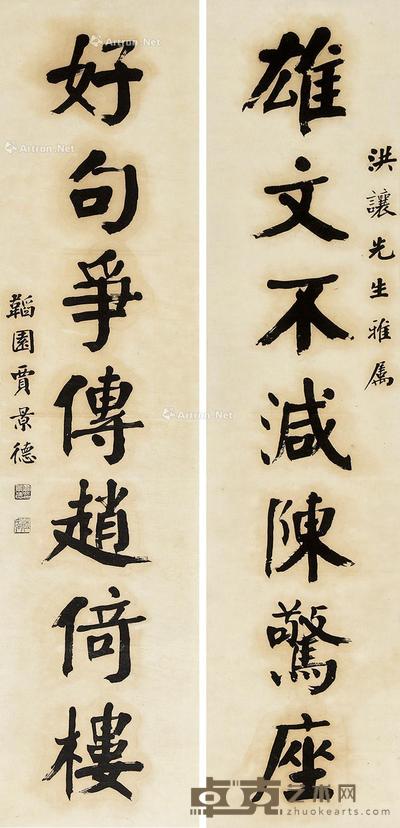 洪讓先生雅属
雄文不減陳驚座
好句爭傳趙倚樓
韜園賈景德
Artron.Net
Artron.Net
Artron.Net
Artron.Net
卓克艺术网
http://www.zhuokearts.com